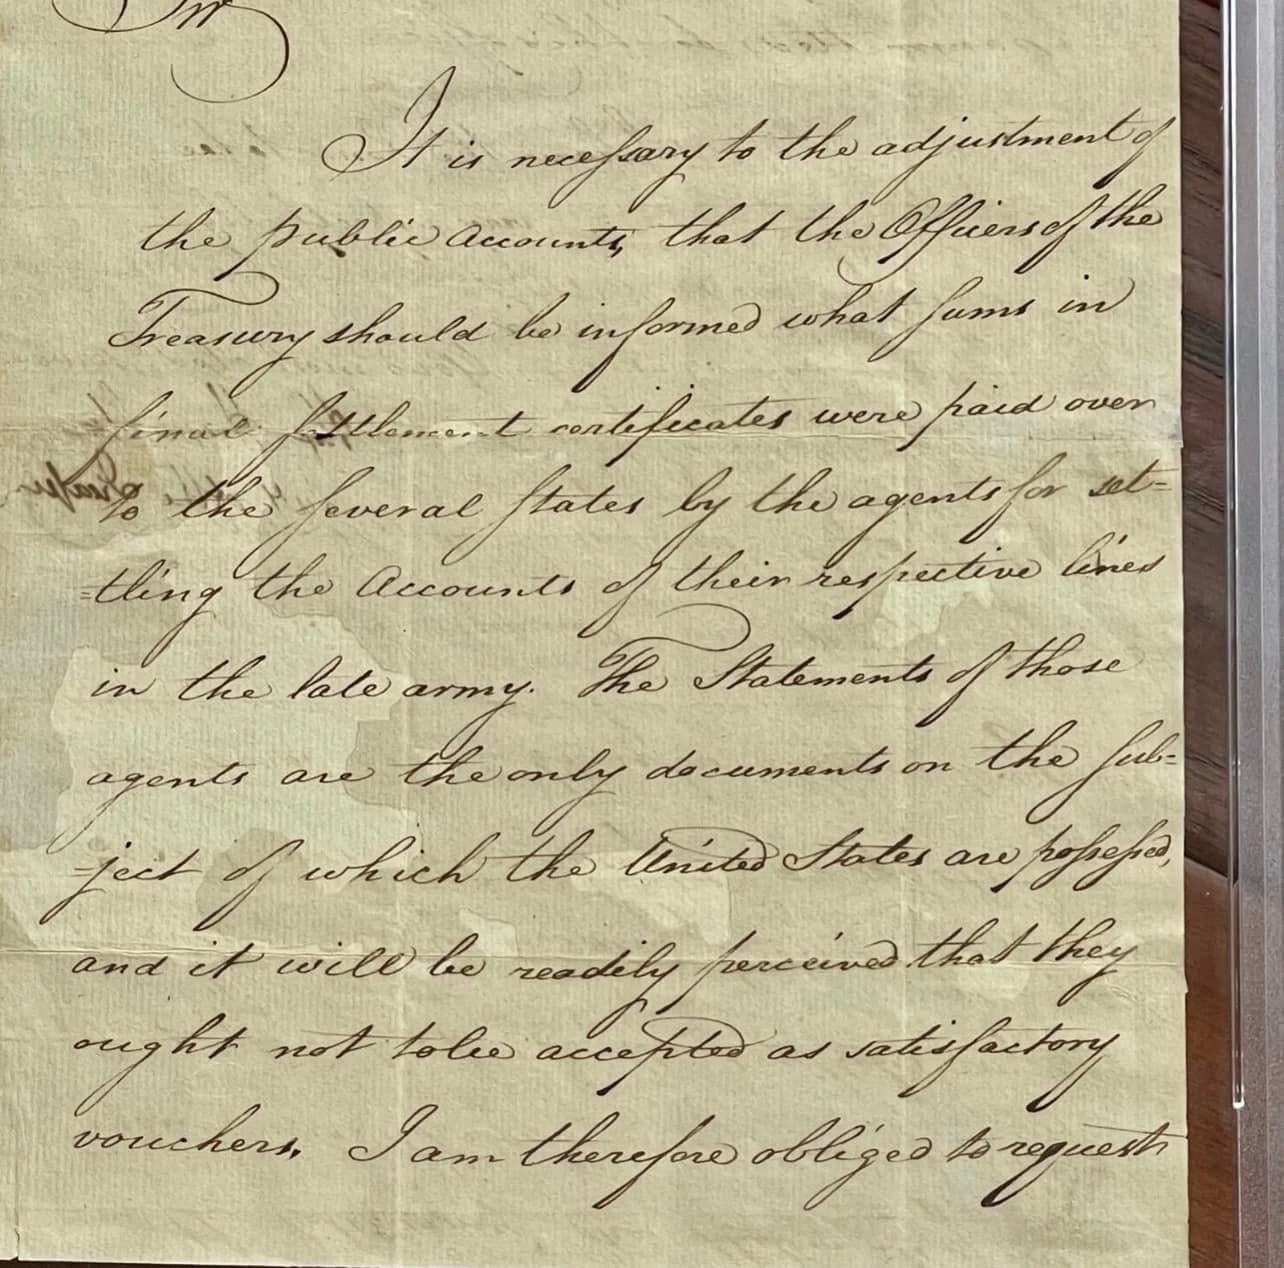 Sir
It is necessary to the adjustment of
the public Accounts, that the Officers of the
Treasury should be informed what sums in
final settlement certificates were paid over
to the several States by the agents for set=
=tling the Accounts of their respective lines
in the late army. The Statements of those
agents are the only documents on the sub=
=ject of which the United States are possessed,
and it will be readily perceived that they
ought not to be accepted as satisfactory
vouchers. I am therefore obliged to request